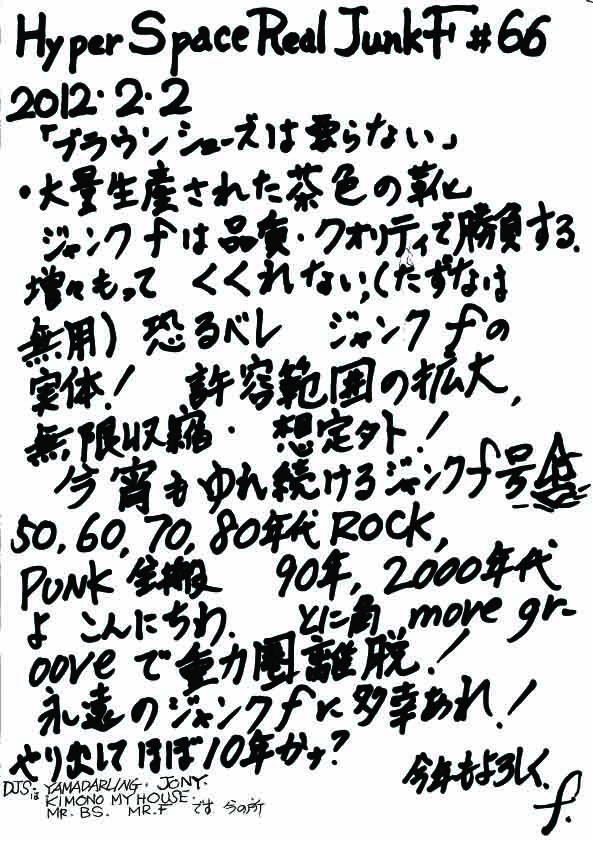 Hyper Space Real JunkF #66
2012.2.2
「ブラウンシューズは要らない」
・大量生産された茶色の靴
ジャンクfは品質・クオリティで勝負する.
増々もって くくれない,(たずなは
無用) 恐るべし ジャンクfの
実体! 許容範囲の拡大,
無限収縮・ 想定外!
今宵もゆれ続けるジャンクf号
50, 60, 70, 80年代 ROCK,
PUNK 全搬 90年, 2000年代
よ こんにちわ. とに角 move gr-
oove で重力圏離脱!
永遠のジャンクfに多幸あれ!
やり出してほぼ10年かナ?
今年もよろしく.
f.
DJS. は YAMADARLING. JONY.
KIMONO MY HOUSE.
MR. BS. MR. F です 今の所